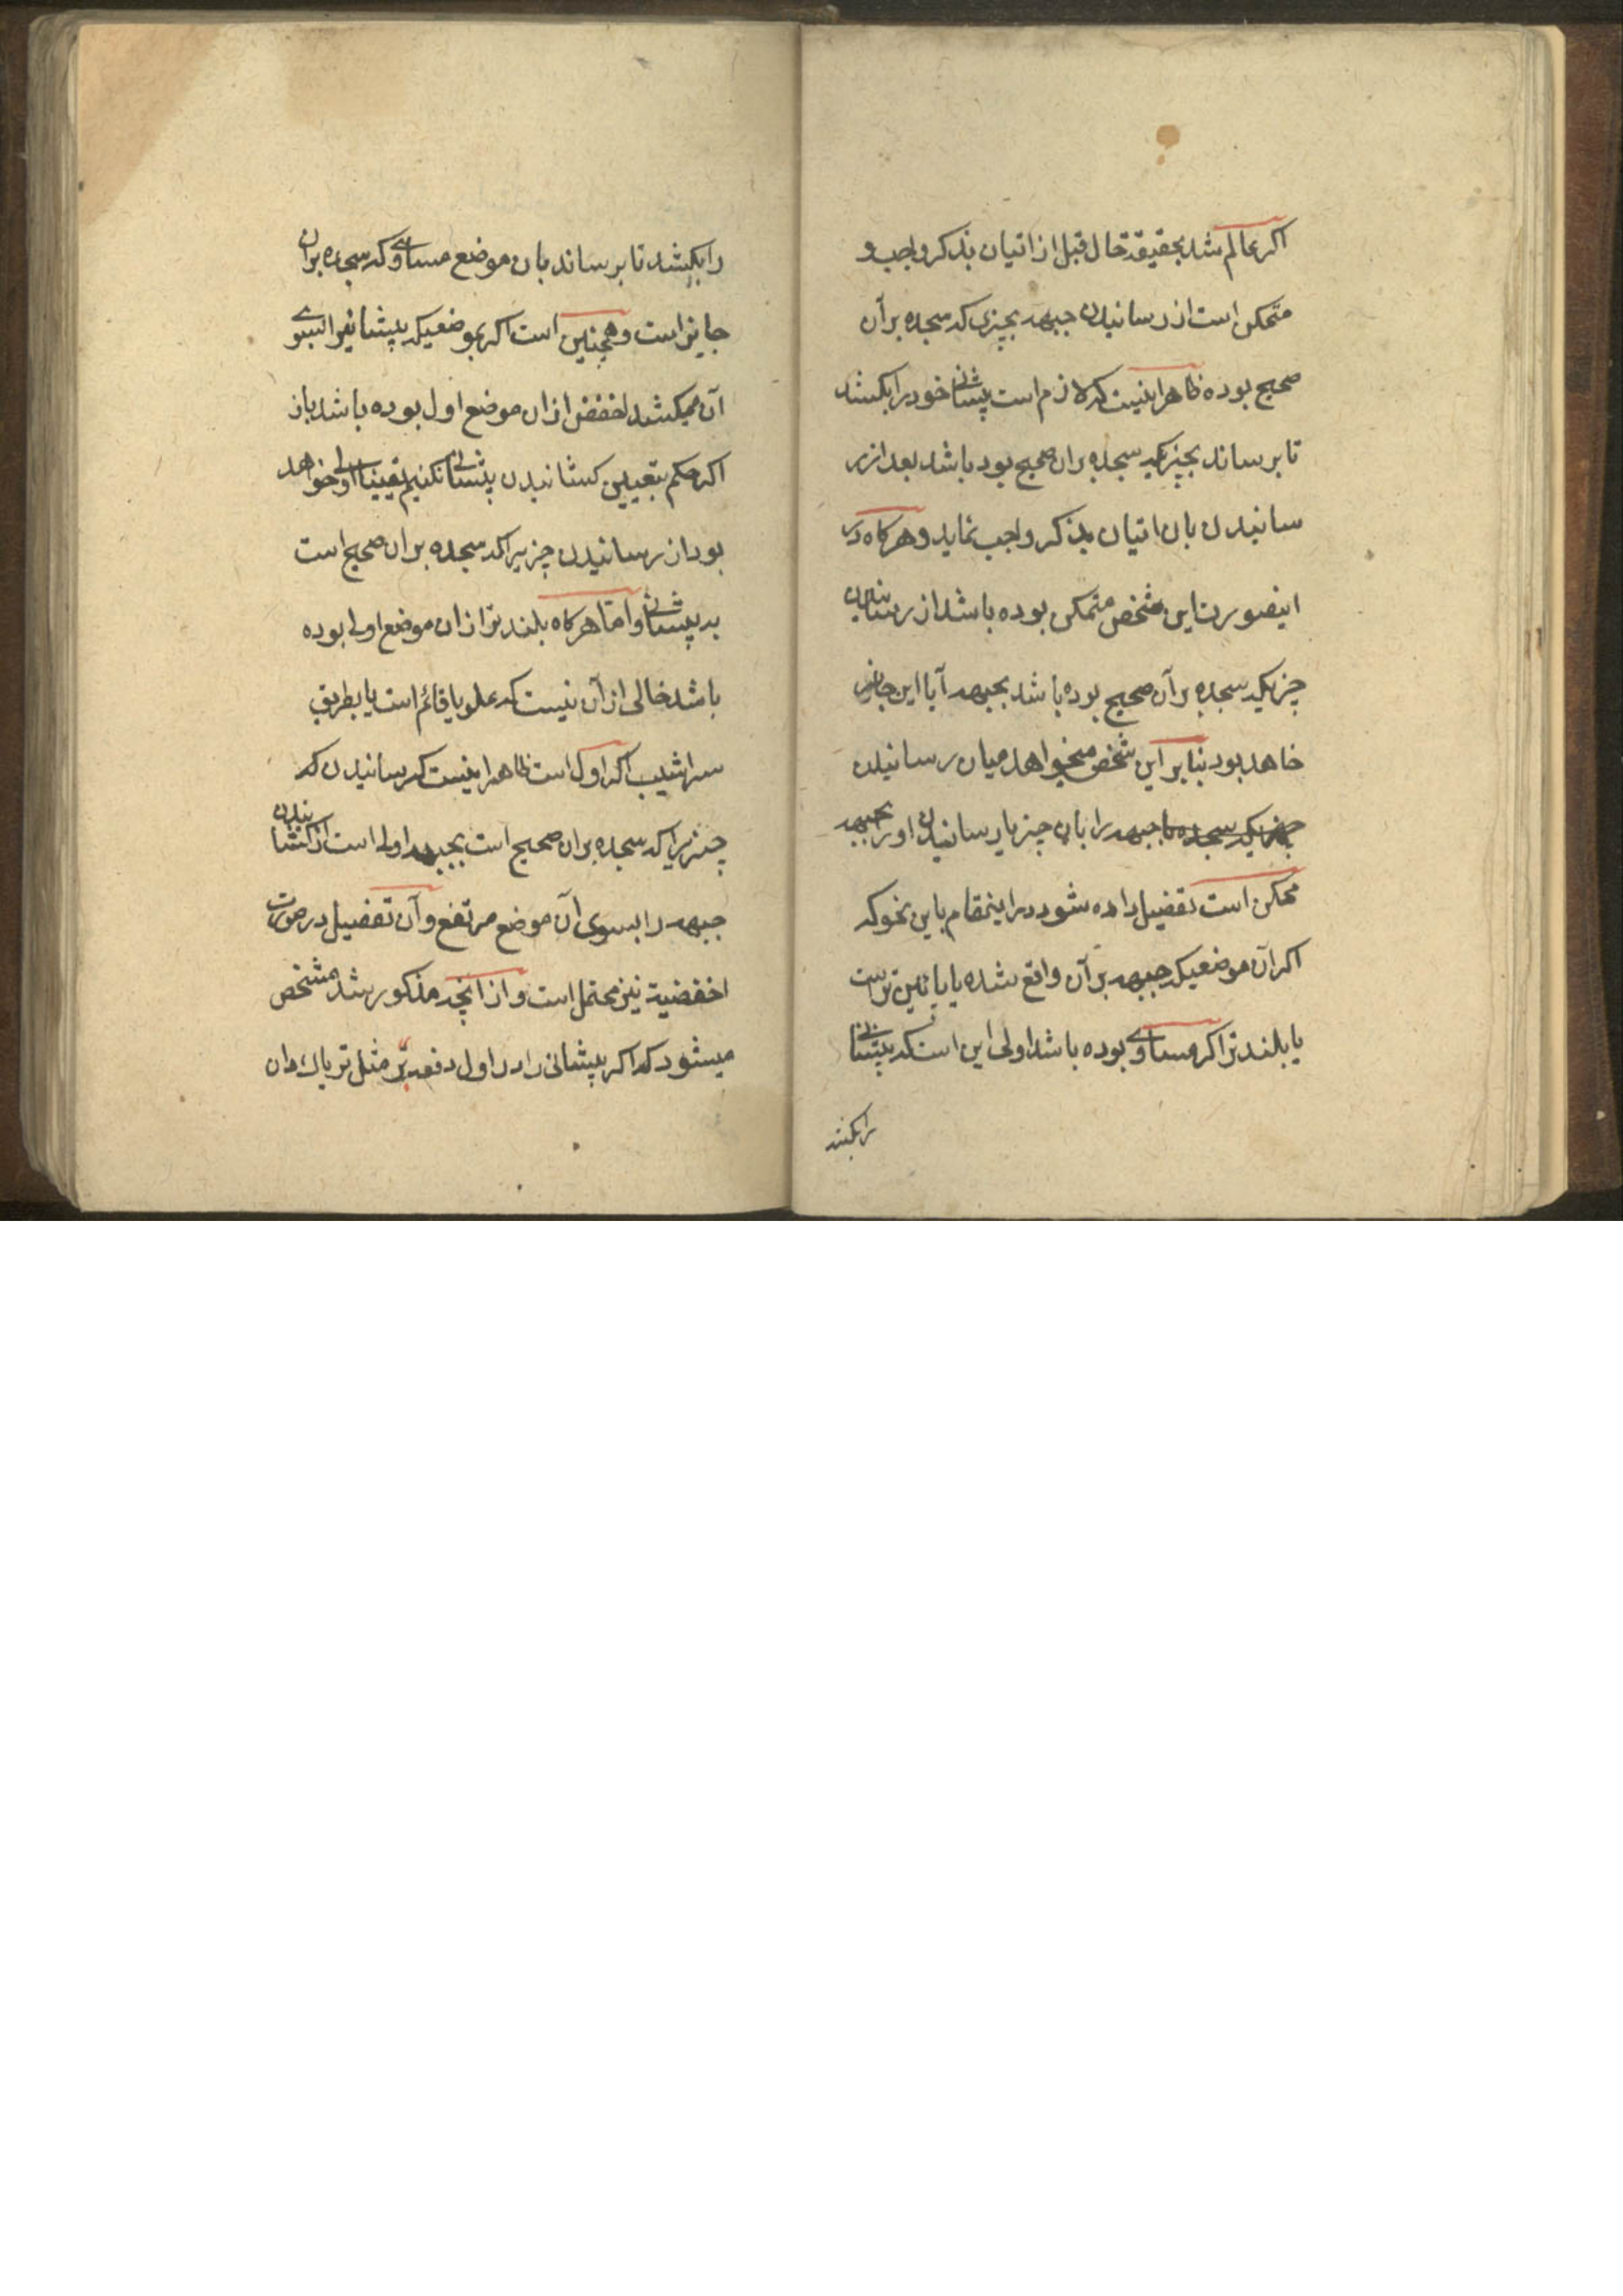 اکر عالم شد بحقیقة حال قبل از اتیان بذکر واجب و
متمکن است از رسانیدن جبهه بچیزی که سجده بر آن
صحیح بوده ظاهر اینست که لازم است پیشانی خود را بکشد
تا برساند بچیزیکه سجده بران صحیح بود باشد بعد از ر
سانیدن بان اتیان بذکر واجب نماید و هرکاه در
اینصورت این شخص متمکن بوده باشد از رسانیدن
چیزیکه سجده بر آن صحیح بوده باشد بجبهه آیا این جایز
خاهد بود بنابر این شخص میخواهد میان رسانیدن
جبهه را بان چیز یا رسانیدن او را بجبهه
ممکن است تفضیل داده شود در اینمقام باین نحو که
اکر آن موضعیکه جبهه بر آن واقع شده یا پائین ترست
یا بلندتر اکر مساوی بوده باشد اولی این است که پیشانی
را بکشد
را بکشد تا برساند بان موضع مساوی که سجده بران
جایز است و همچنین است اکر بموضعیکه پیشانیرا بسوی
آن میکشد اخفض ازان موضع اول بوده باشد باز
اکر حکم بتعیین کشانیدن پیشانی نکنیم یقینا اولی خواهد
بود از رسانیدن چیزیرا که سجده بران صحیح است
به پیشانی و امّا هرکاه بلندتر ازان موضع اولی بوده
باشد خالی از آن نیست که علو یا قائم است یا بطریق
سراشیب اکر اول است ظاهر اینست که رسانیدن که
چیزیرا که سجده بران صحیح است بجبهه اولی است از کشانیدن
جبهه را بسوی آن موضع مرتفع و آن تفضیل در صورت
اخفضیة نیز محتمل است و از آنچه مذکور شد مشخص
میشود که اکر پیشانی را در اول دفعه بر مثل تریاک دان